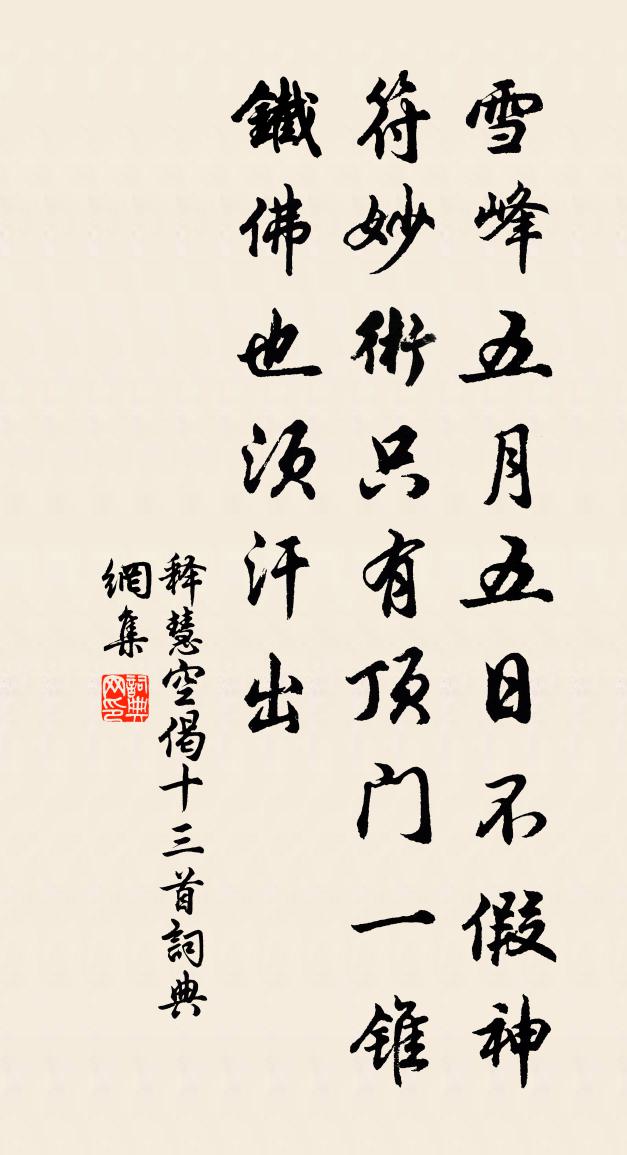 雪峰五月五日不假神
符妙術只有顶门一錐
鐵佛也须汗出
释慧空偈十三首詞典
網集
詞典
网印